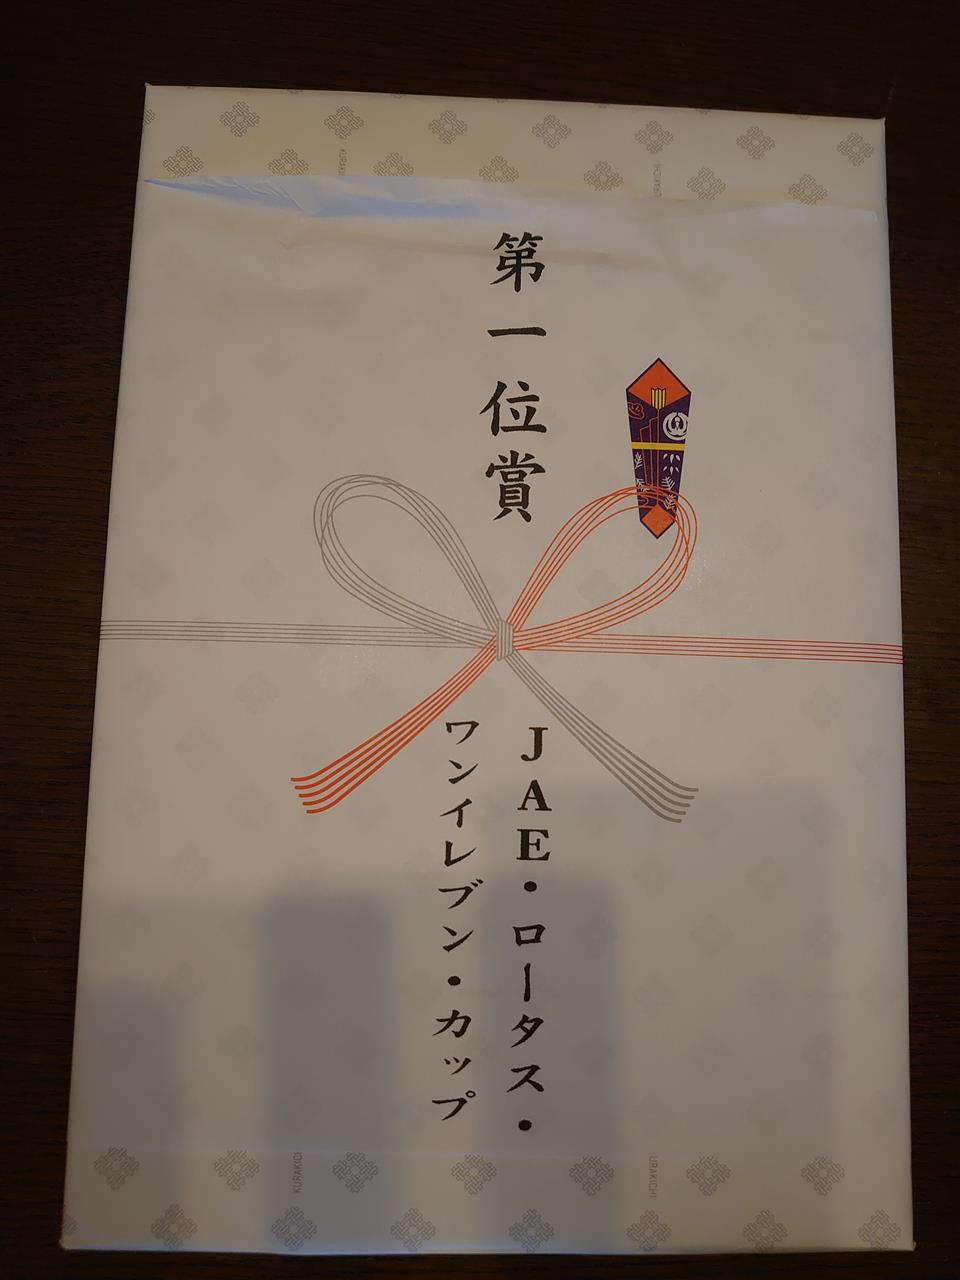 第一位賞
JAE・ロータス・
ワンイレブン・カップ
KURAKICHI